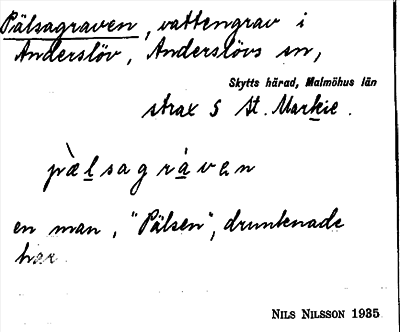 Pälsagraven, vattengrav i
Anderslöv, Anderslövs sn,
Skytts härad, Malmöhus län
strax S St. Markie.
pæ̀lsagráven
en man, "Pälsen", drunknade
här
NILS NILSSON 1935